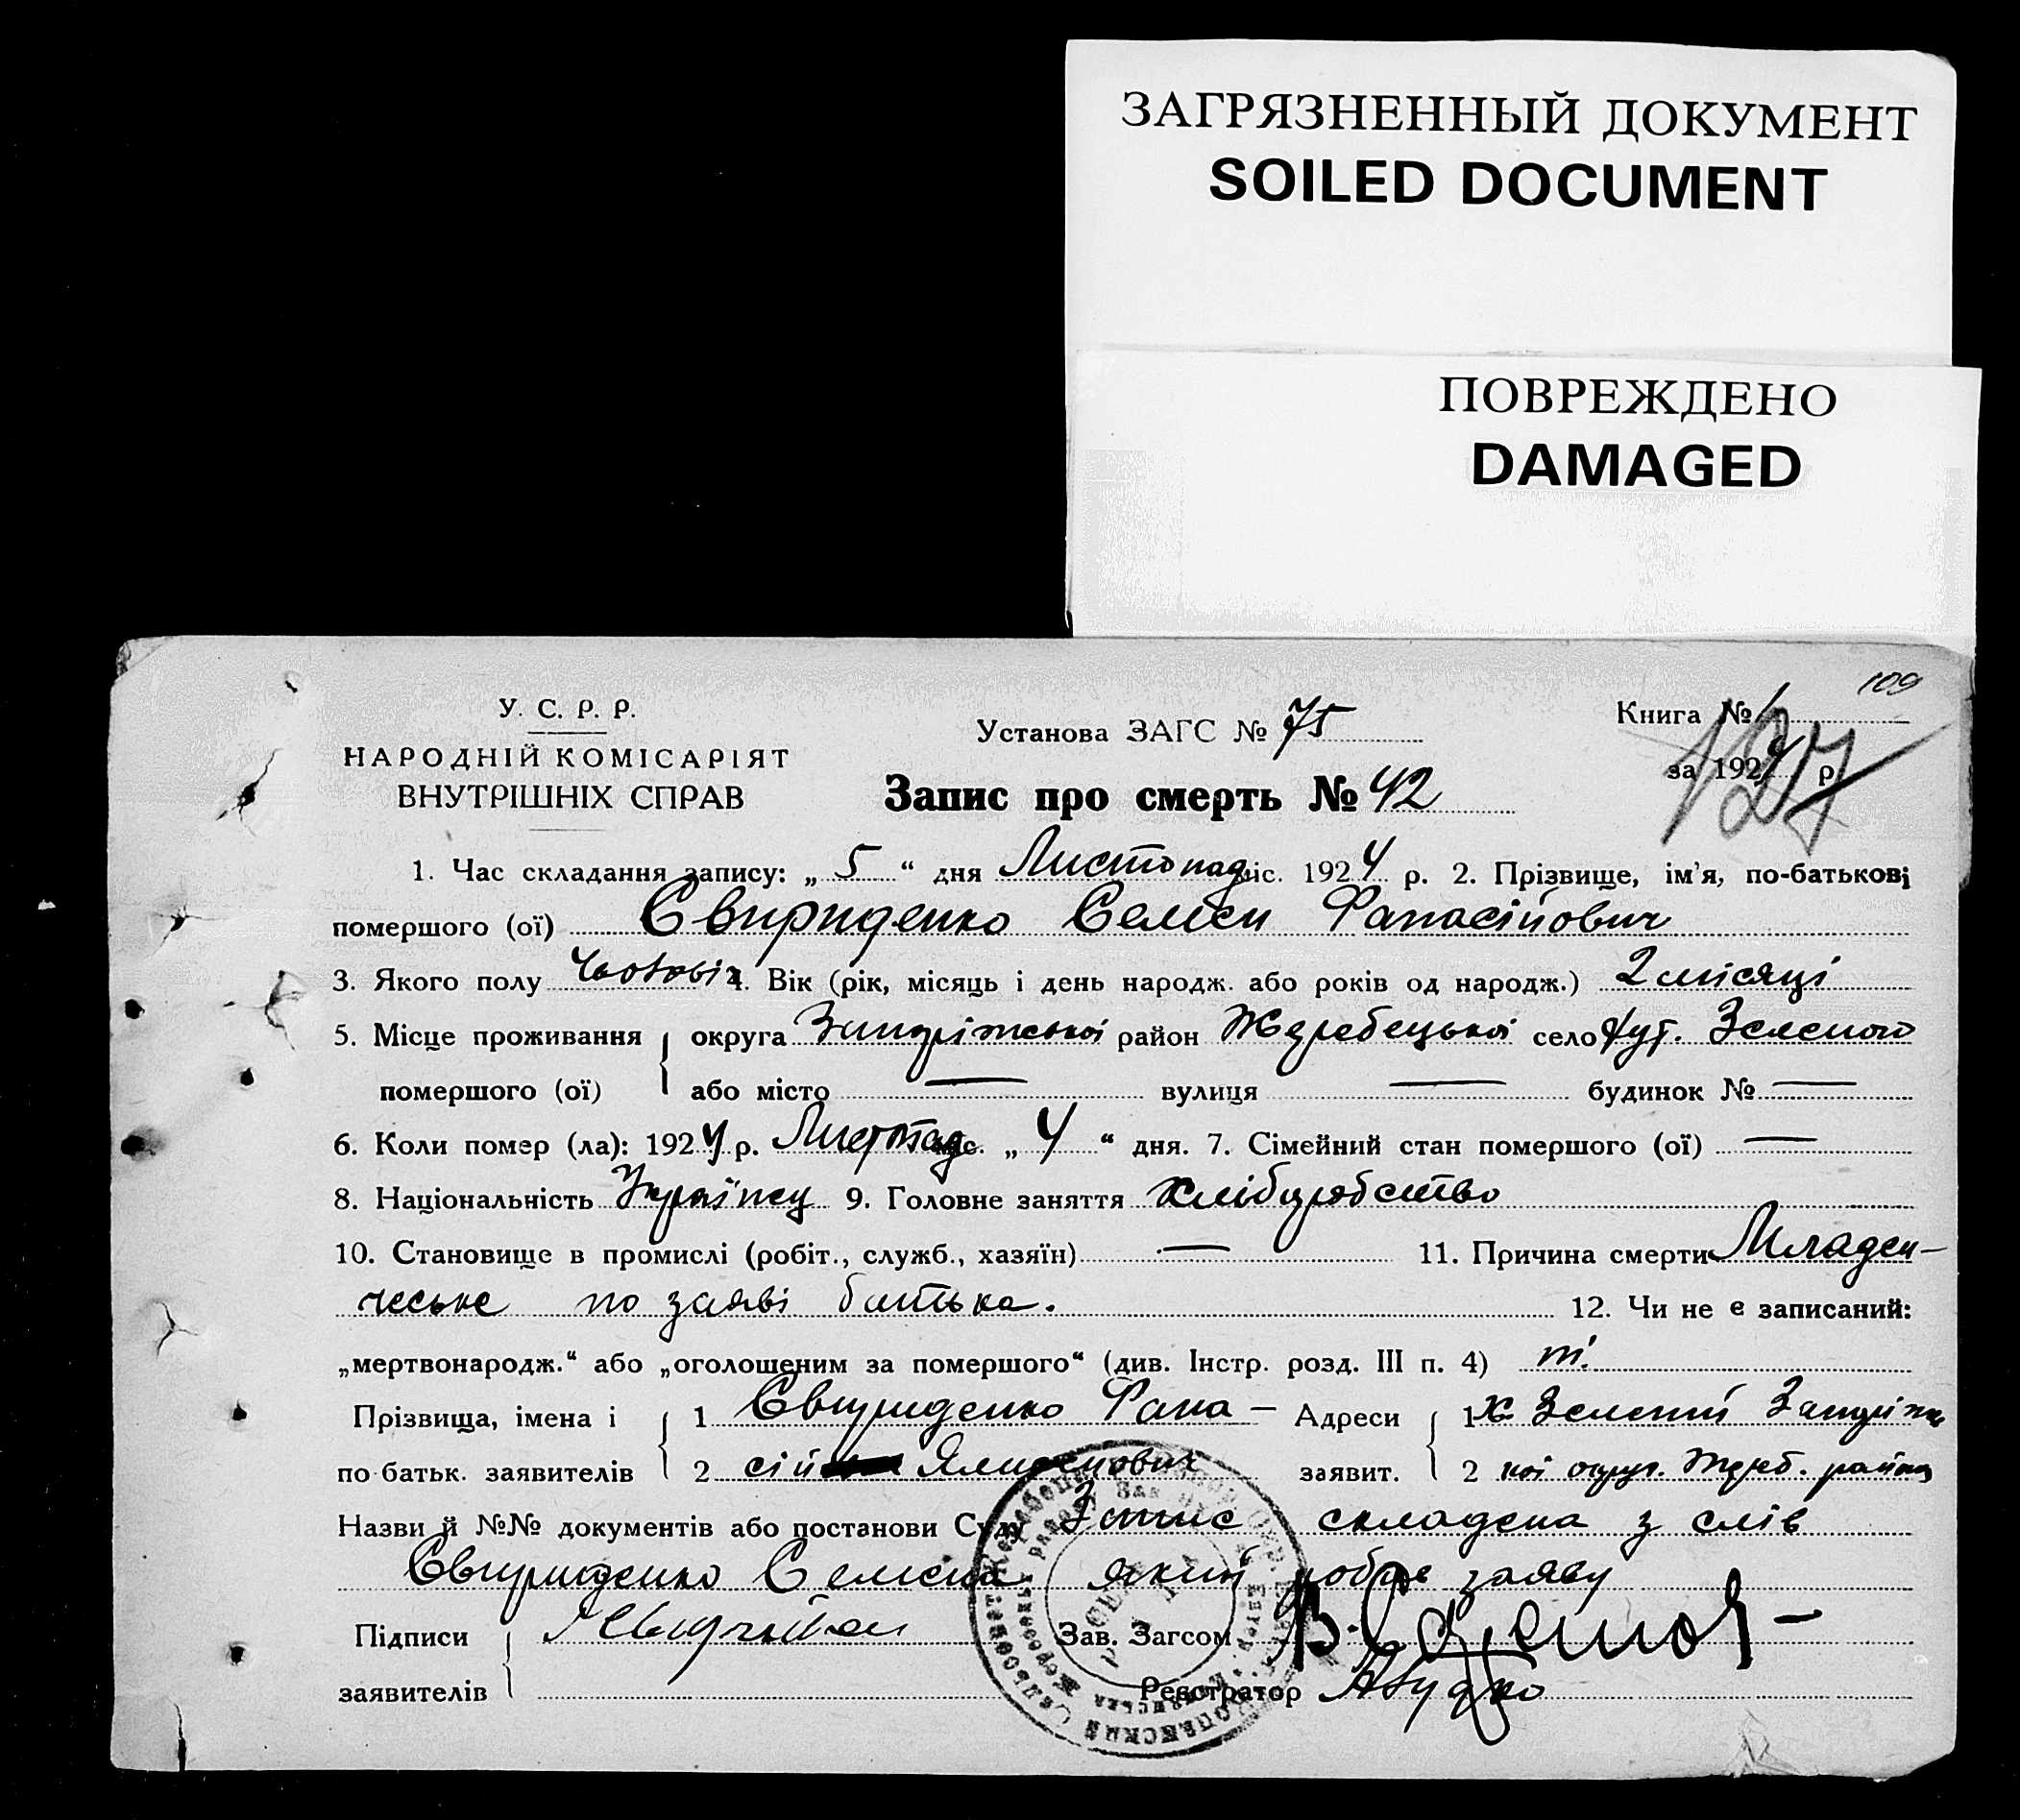 ЗАГРЯЗНЕННЫЙ ДОКУМЕНТ
SOILED DOCUMENT
ПОВРЕЖДЕНО
DAMAGED
109
У. С. Р. Р.
НАРОДНІЙ КОМІСАРІЯТ
ВНУТРІШНІХ СПРАВ
Установа ЗАГС № 75
Запис про смерть № 42
Книга № 1
за 1924 р.
127
1. Час складання запису: „ 5 “ дня Листопад міс. 1924 р. 2. Прізвище, ім'я, по-батькові
помершого (ої) Свириденко Семен Фанасійович
3. Якого полу Чоловіч 4. Вік (рік, місяць і день народж. або років од народж.) 2 місяці
5. Місце проживання округа Запоріжської район Жеребецької село хут. Зеленого
помершого (ої) або місто — вулиця — будинок № —
6. Коли помер (ла): 1924 р. Листопад міс. „ 4 “ дня. 7. Сімейний стан помершого (ої) —
8. Національність Українец 9. Головне заняття хліборобство
10. Становище в промислі (робіт., служб., хазяїн) — 11. Причина смерти Младен-
ческе по заяві батька. 12. Чи не є записаний:
„мертвонародж.“ або „оголошеним за помершого“ (див. Інстр. розд. III п. 4)
Прізвища, імена і 1 Свириденко Фана- Адреси 1 х. Зелений Запоріж
по батьк. заявителів 2 сій заявит. 2 кої округ. Жереб. района
Назви й №№ документів або постанови Суду Запис складена з слів
Свириденко Семена який робив заяву
Підписи Зав. Загсом
заявителів Реєстратор